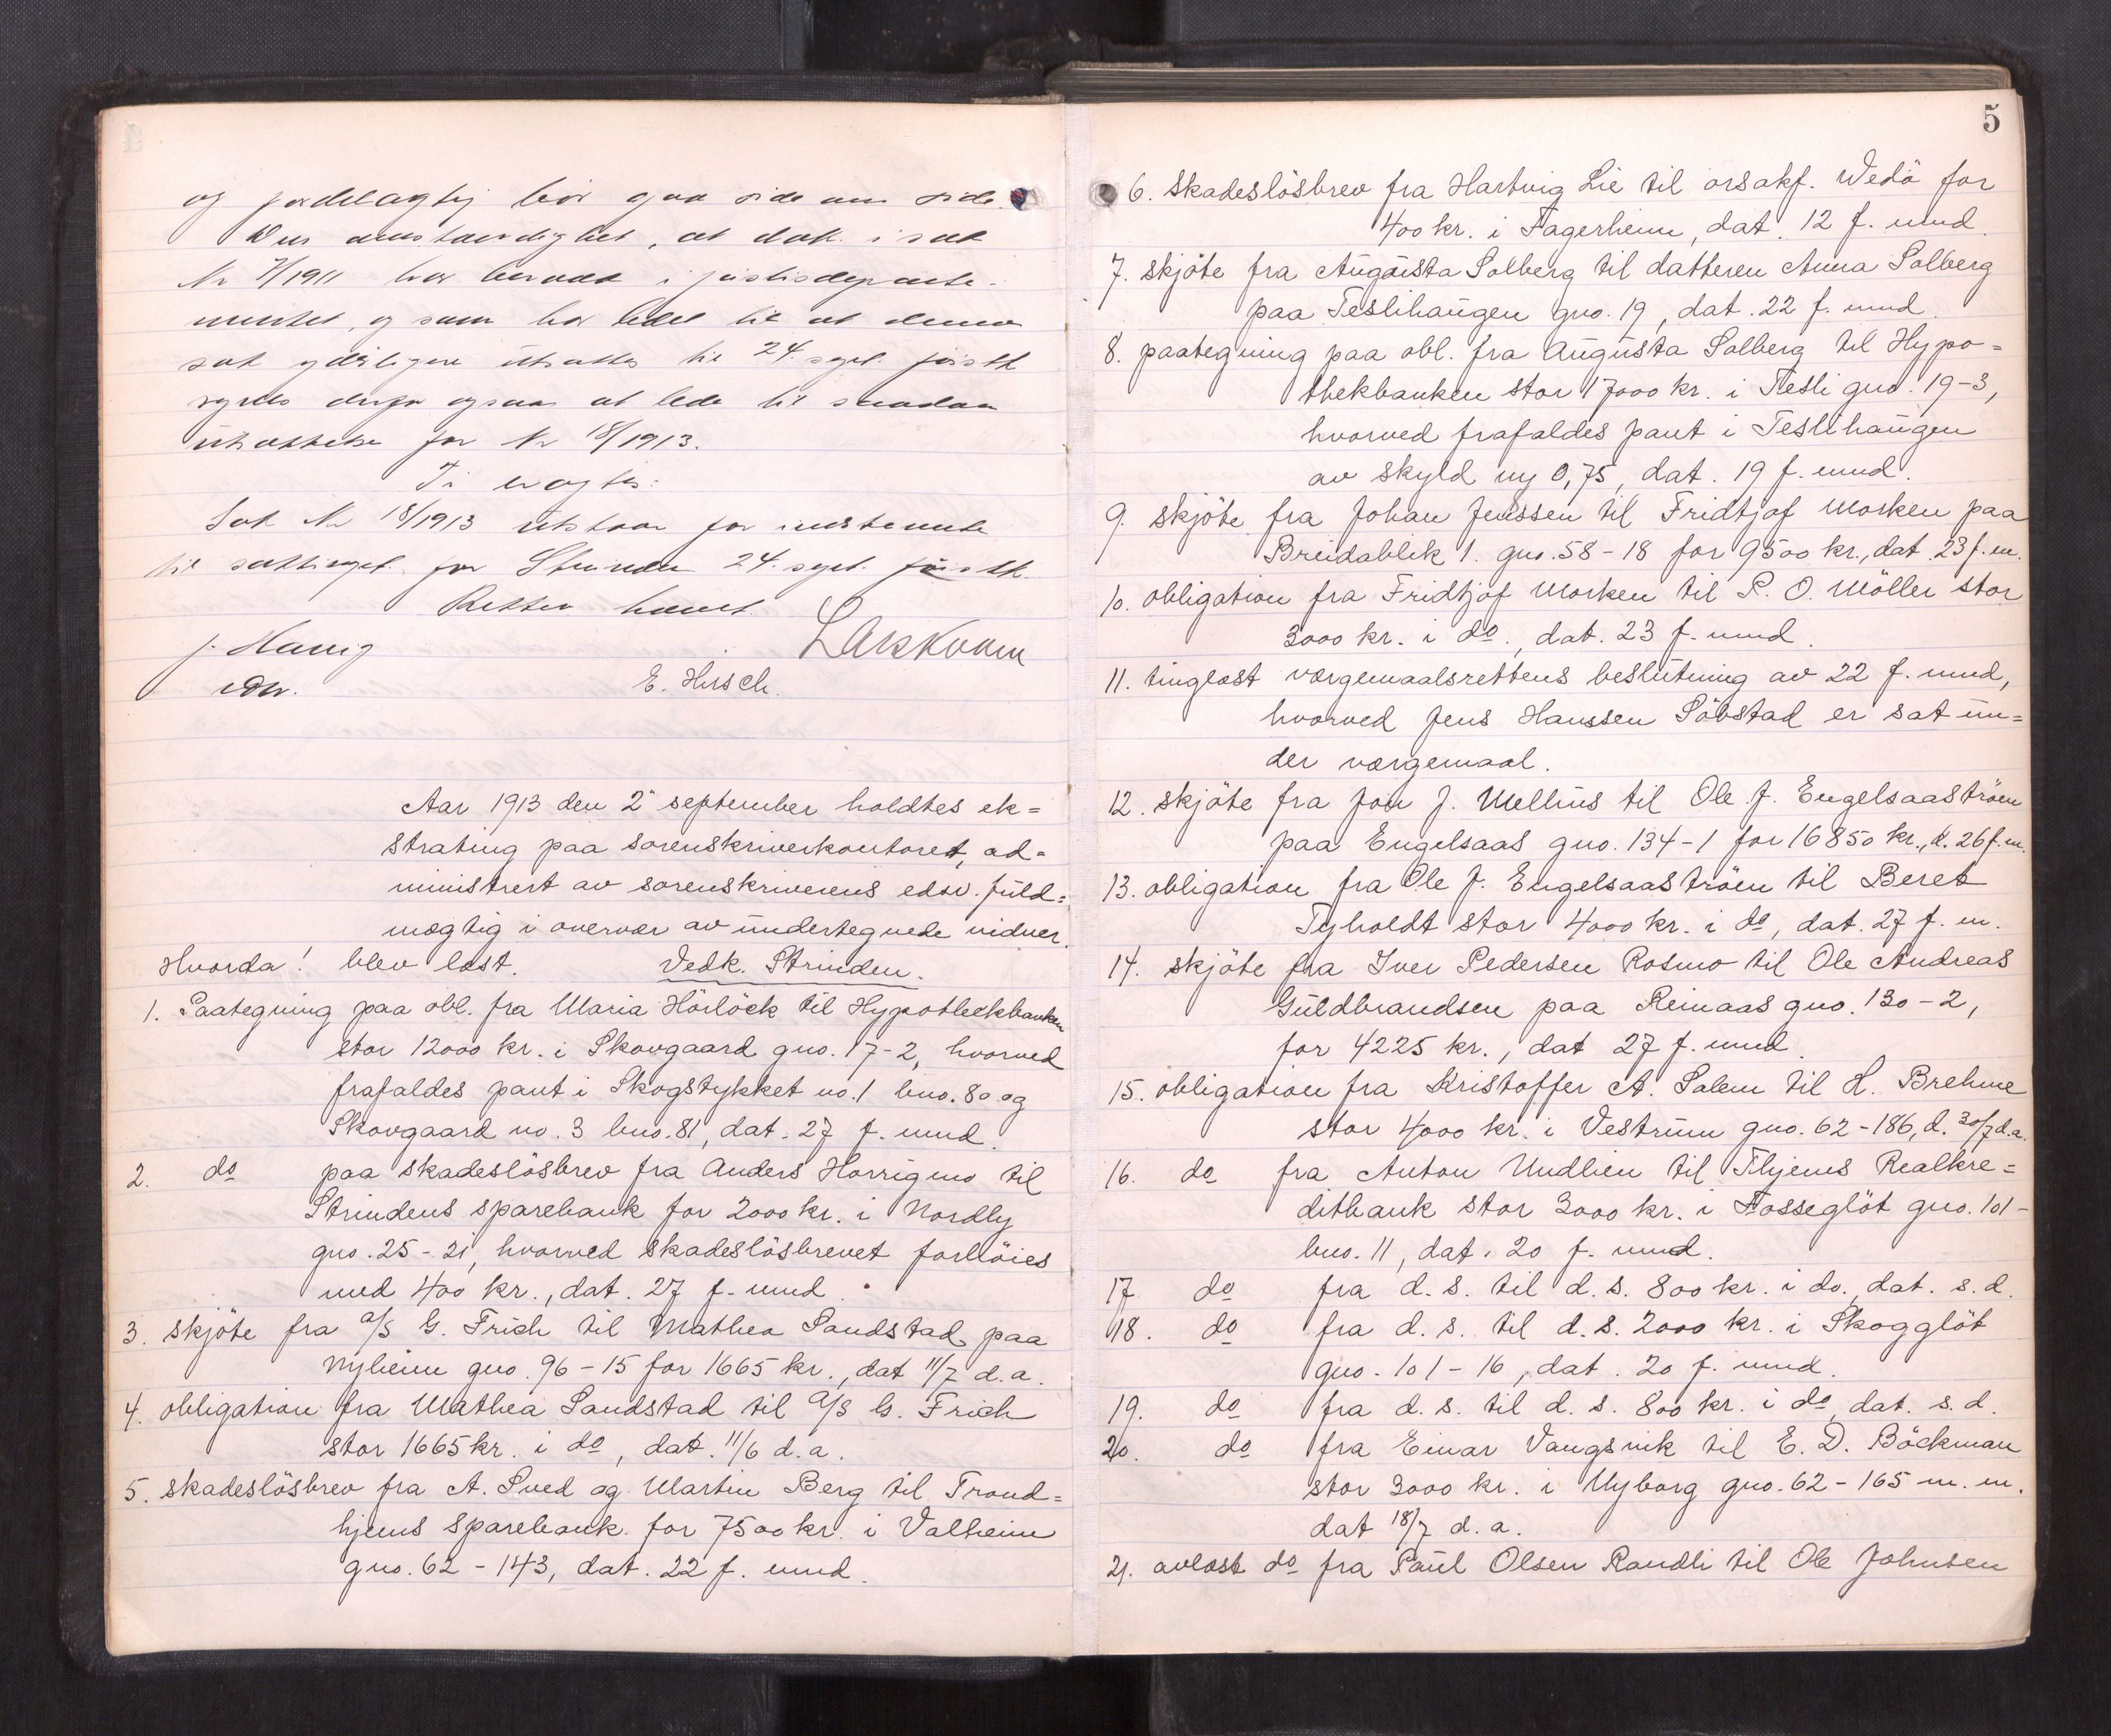 og fordelagtig bör gaa side om side.
Den omstændighet, at dok. i sak
Nr 7/1911 har beroet i justisdeparte-
mentet, og som har ledet til at denne
sak yderligere utsattes til 24. sept. förstk
synes derfor ogsaa at lede til saadan
utsættelse for Nr 18/1913.
Ti eragtes:
Sak Nr 18/1913 utstaar for indstevnte
til sakttinget for Strinden 24. sept. förstk.
Retten hævet.
E. Hirsch.
Aar 1913 den 2' september holdtes ek=
strating paa sorenskriverkontoret, ad=
ministrert av sorenskriverens edsv. fuld=
mægtig i overvær av undertegnede vidner.
Hvorda! blev læst. Vedk. Strinden.
1. Paategning paa obl. fra Maria Hörlöck til Hypothekbanken
stor 12000 kr. i Skovgaard gno. 17-2, hvorved
frafaldes pant i Skogstykket no. 1 bno. 80 og
Skovgaard no. 3 bno. 81, dat. 27 f. mnd.
2. do paa skadeslösbrev fra Anders Horrigmo til
Strindens sparebank for 2000 kr. i Nordly
gno. 25-21, hvorved skadeslösbrevet forhöies
med 400 kr., dat. 27 f. mnd.
3. skjöte fra a/s G. Frich til Mathea Sandstad paa
Nyheim gno. 96-15 for 1665 kr., dat 11/7 d.a.
4. obligation fra Mathea Sandstad til a/s G. Frich
stor 1665 kr. i do, dat. 11/6 d.a.
5. skadeslösbrev fra A. Sved og Martin Berg til Trond=
hjems sparebank for 7500 kr. i Valheim
gno. 62-143, dat. 22 f. mnd.
5
6. skadeslösbrev fra Hartvig Lie til orsakf. Wedö for
400 kr. i Fagerheim, dat. 12 f. mnd.
7. skjöte fra Augusta Solberg til datteren Anna Solberg
paa Teslihaugen gno. 19, dat. 22 f. mnd.
8. paategning paa obl. fra Augusta Solberg til Hypo=
thekbanken stor 17000 kr. i Tesli gno. 19-3,
hvorved frafaldes pant i Teslihaugen
av skyld ny 0,75, dat. 19 f. mnd.
9. skjöte fra Johan Jenssen til Fridtjof Morken paa
Breidablik 1. gno. 58-18 for 9500 kr., dat. 23 f. m.
10. obligation fra Fridtjof Morken til P. O. Möller stor
3000 kr. i do., dat. 23 f. mnd.
11. tinglæst værgemaalsrettens beslutning av 22 f. mnd,
hvorved Jens Hanssen Söbstad er sat un=
der værgemaal.
12. skjöte fra Jon J. Mellius til Ole J. Engelsaaströen
paa Engelsaas gno. 134-1 for 16850 kr., d. 26 f. m.
13. obligation fra Ole J. Engelsaaströen til Beret
Tyholdt stor 4000 kr. i do, dat. 27 f. m.
14. skjöte fra Iver Pedersen Rosmo til Ole Andreas
Guldbrandsen paa Reinaas gno. 130-2,
for 4225 kr., dat 27 f. mnd.
15. obligation fra Kristoffer A. Salem til H. Brehme
stor 4000 kr. i Vestrum gno. 62-186, d. 30/7 d.a.
16. do fra Anton Undlien til Thjems Realkre=
ditbank stor 3000 kr. i Fosseglöt gno. 101-
bno. 11, dat. 20 f. mnd.
17 do fra d. s. til d. s. 800 kr. i do., dat. s. d.
18. do fra d. s. til d. s. 2000 kr. i Skogglöt
gno. 101-16, dat. 20 f. mnd.
19. do fra d. s. til d. s. 800 kr. i do, dat. s. d.
20. do fra Einar Vangsvik til E. D. Böckman
stor 3000 kr. i Nyborg gno. 62-165 m. m.
dat 18/7 d. a.
21. avlæst do fra Paul Olsen Randli til Ole Johnsen